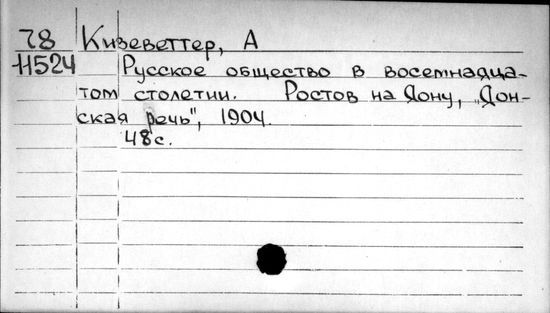 78 Кизеветтер, А
H524 Русское общество в восемнадца-
том столетии. Ростов на Дону, „Дон-
ская речь", 1904.
48с.